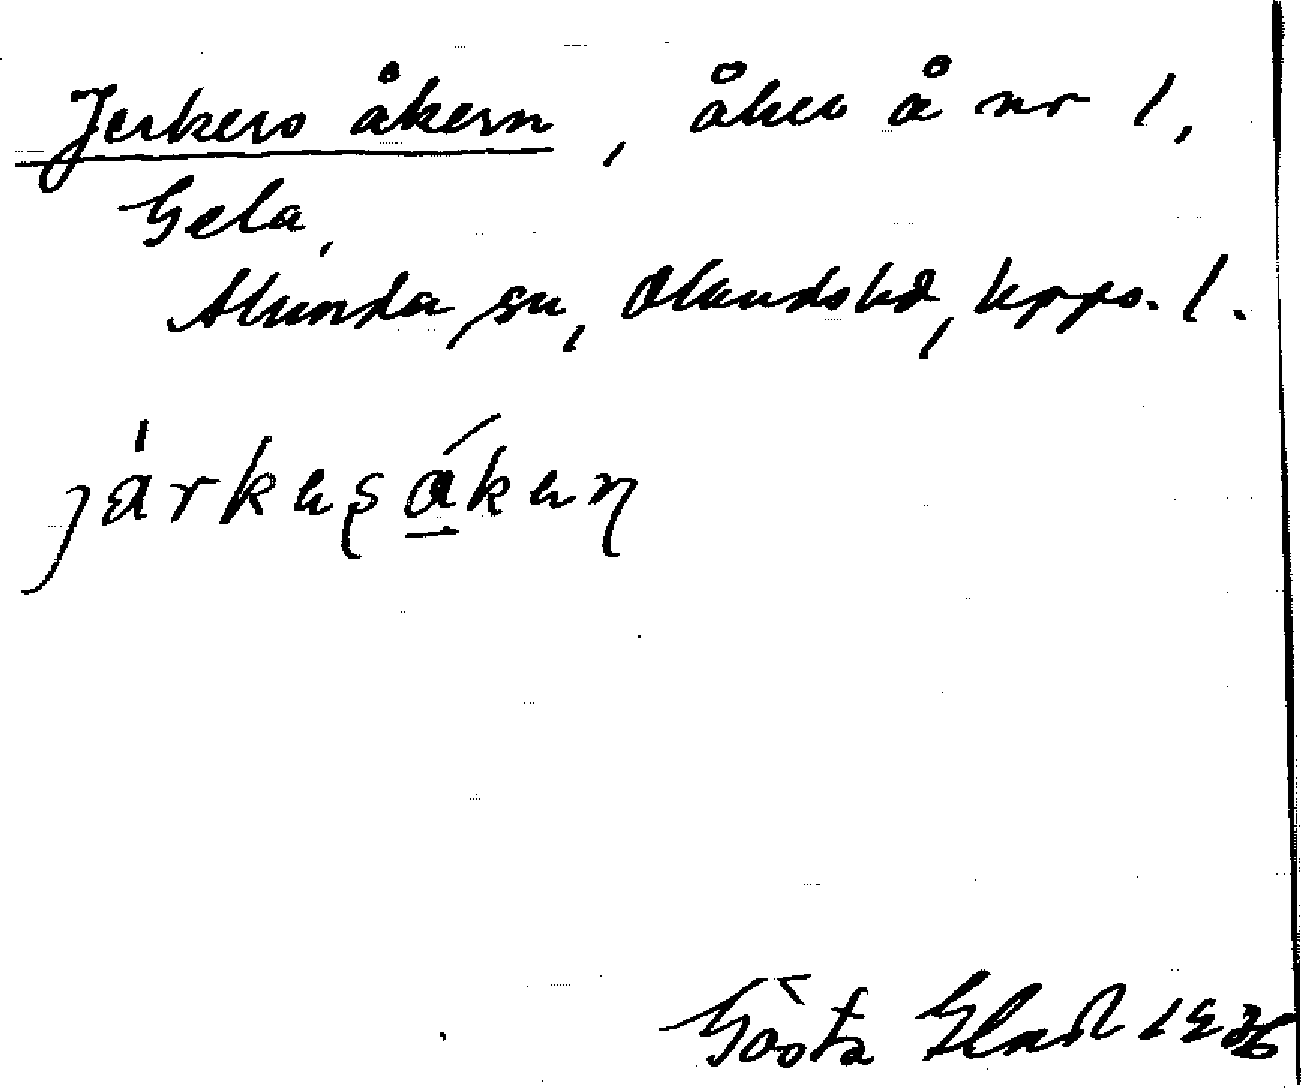 Jerkers åkern, åker å nr 1,
Gela,
Alunda sn, Olands hd, Upps. l.
járkesåkeɳ
Gösta Elad 1936